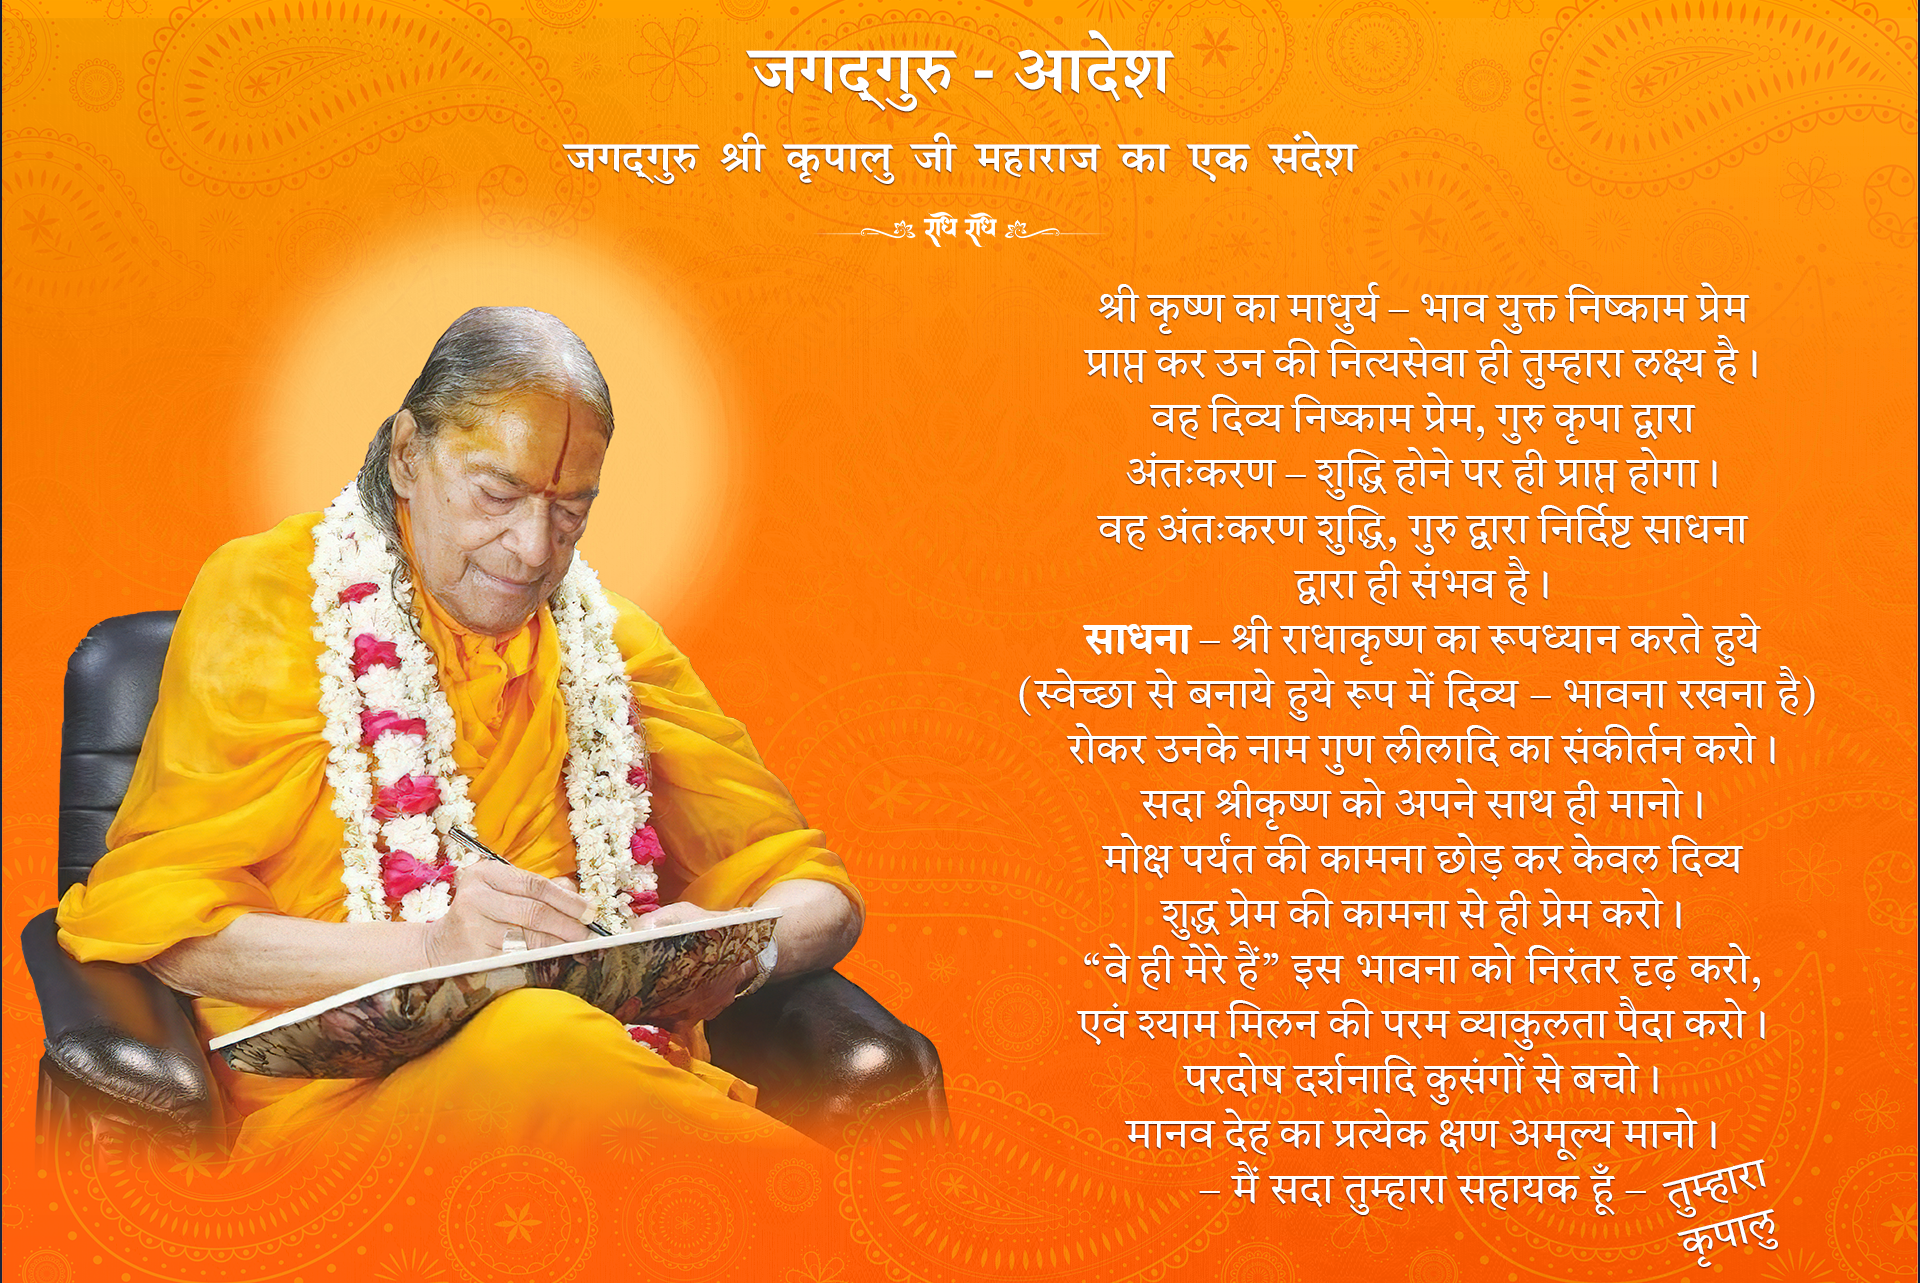 जगद्गुरु - आदेश
जगद्गुरु श्री कृपालु जी महाराज का एक संदेश
राधे राधे
श्री कृष्ण का माधुर्य – भाव युक्त निष्काम प्रेम
प्राप्त कर उन की नित्यसेवा ही तुम्हारा लक्ष्य है।
वह दिव्य निष्काम प्रेम, गुरु कृपा द्वारा
अंतःकरण – शुद्धि होने पर ही प्राप्त होगा।
वह अंतःकरण शुद्धि, गुरु द्वारा निर्दिष्ट साधना
द्वारा ही संभव है।
साधना – श्री राधाकृष्ण का रूपध्यान करते हुये
(स्वेच्छा से बनाये हुये रूप में दिव्य – भावना रखना है)
रोकर उनके नाम गुण लीलादि का संकीर्तन करो।
सदा श्रीकृष्ण को अपने साथ ही मानो।
मोक्ष पर्यंत की कामना छोड़ कर केवल दिव्य
शुद्ध प्रेम की कामना से ही प्रेम करो।
“वे ही मेरे हैं” इस भावना को निरंतर दृढ़ करो,
एवं श्याम मिलन की परम व्याकुलता पैदा करो।
परदोष दर्शनादि कुसंगों से बचो।
मानव देह का प्रत्येक क्षण अमूल्य मानो।
– मैं सदा तुम्हारा सहायक हूँ –
तुम्हारा
कृपालु